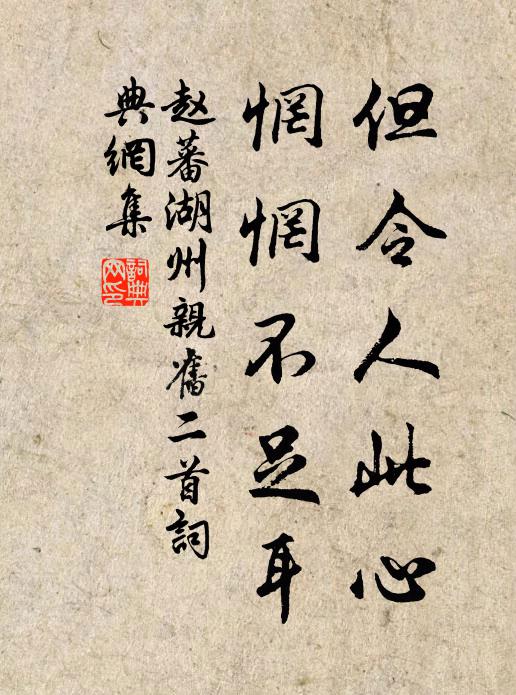 但令人此心
惘惘不足耳
赵蕃湖州親舊二首詞
典網集
詞典
网印